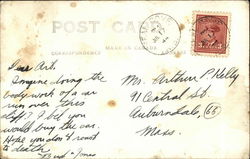 POST CARD
CORRESPONDENCE
MADE IN CANADA
Dear Art.
Imagine doing the
body work of a car
run over this
cliff? I bet you
would buy the car.
Hope you don't roast
to death.
Mr. Arthur P. Kelly
91 Central St.
Auburndale, (66)
Mass.
3 3